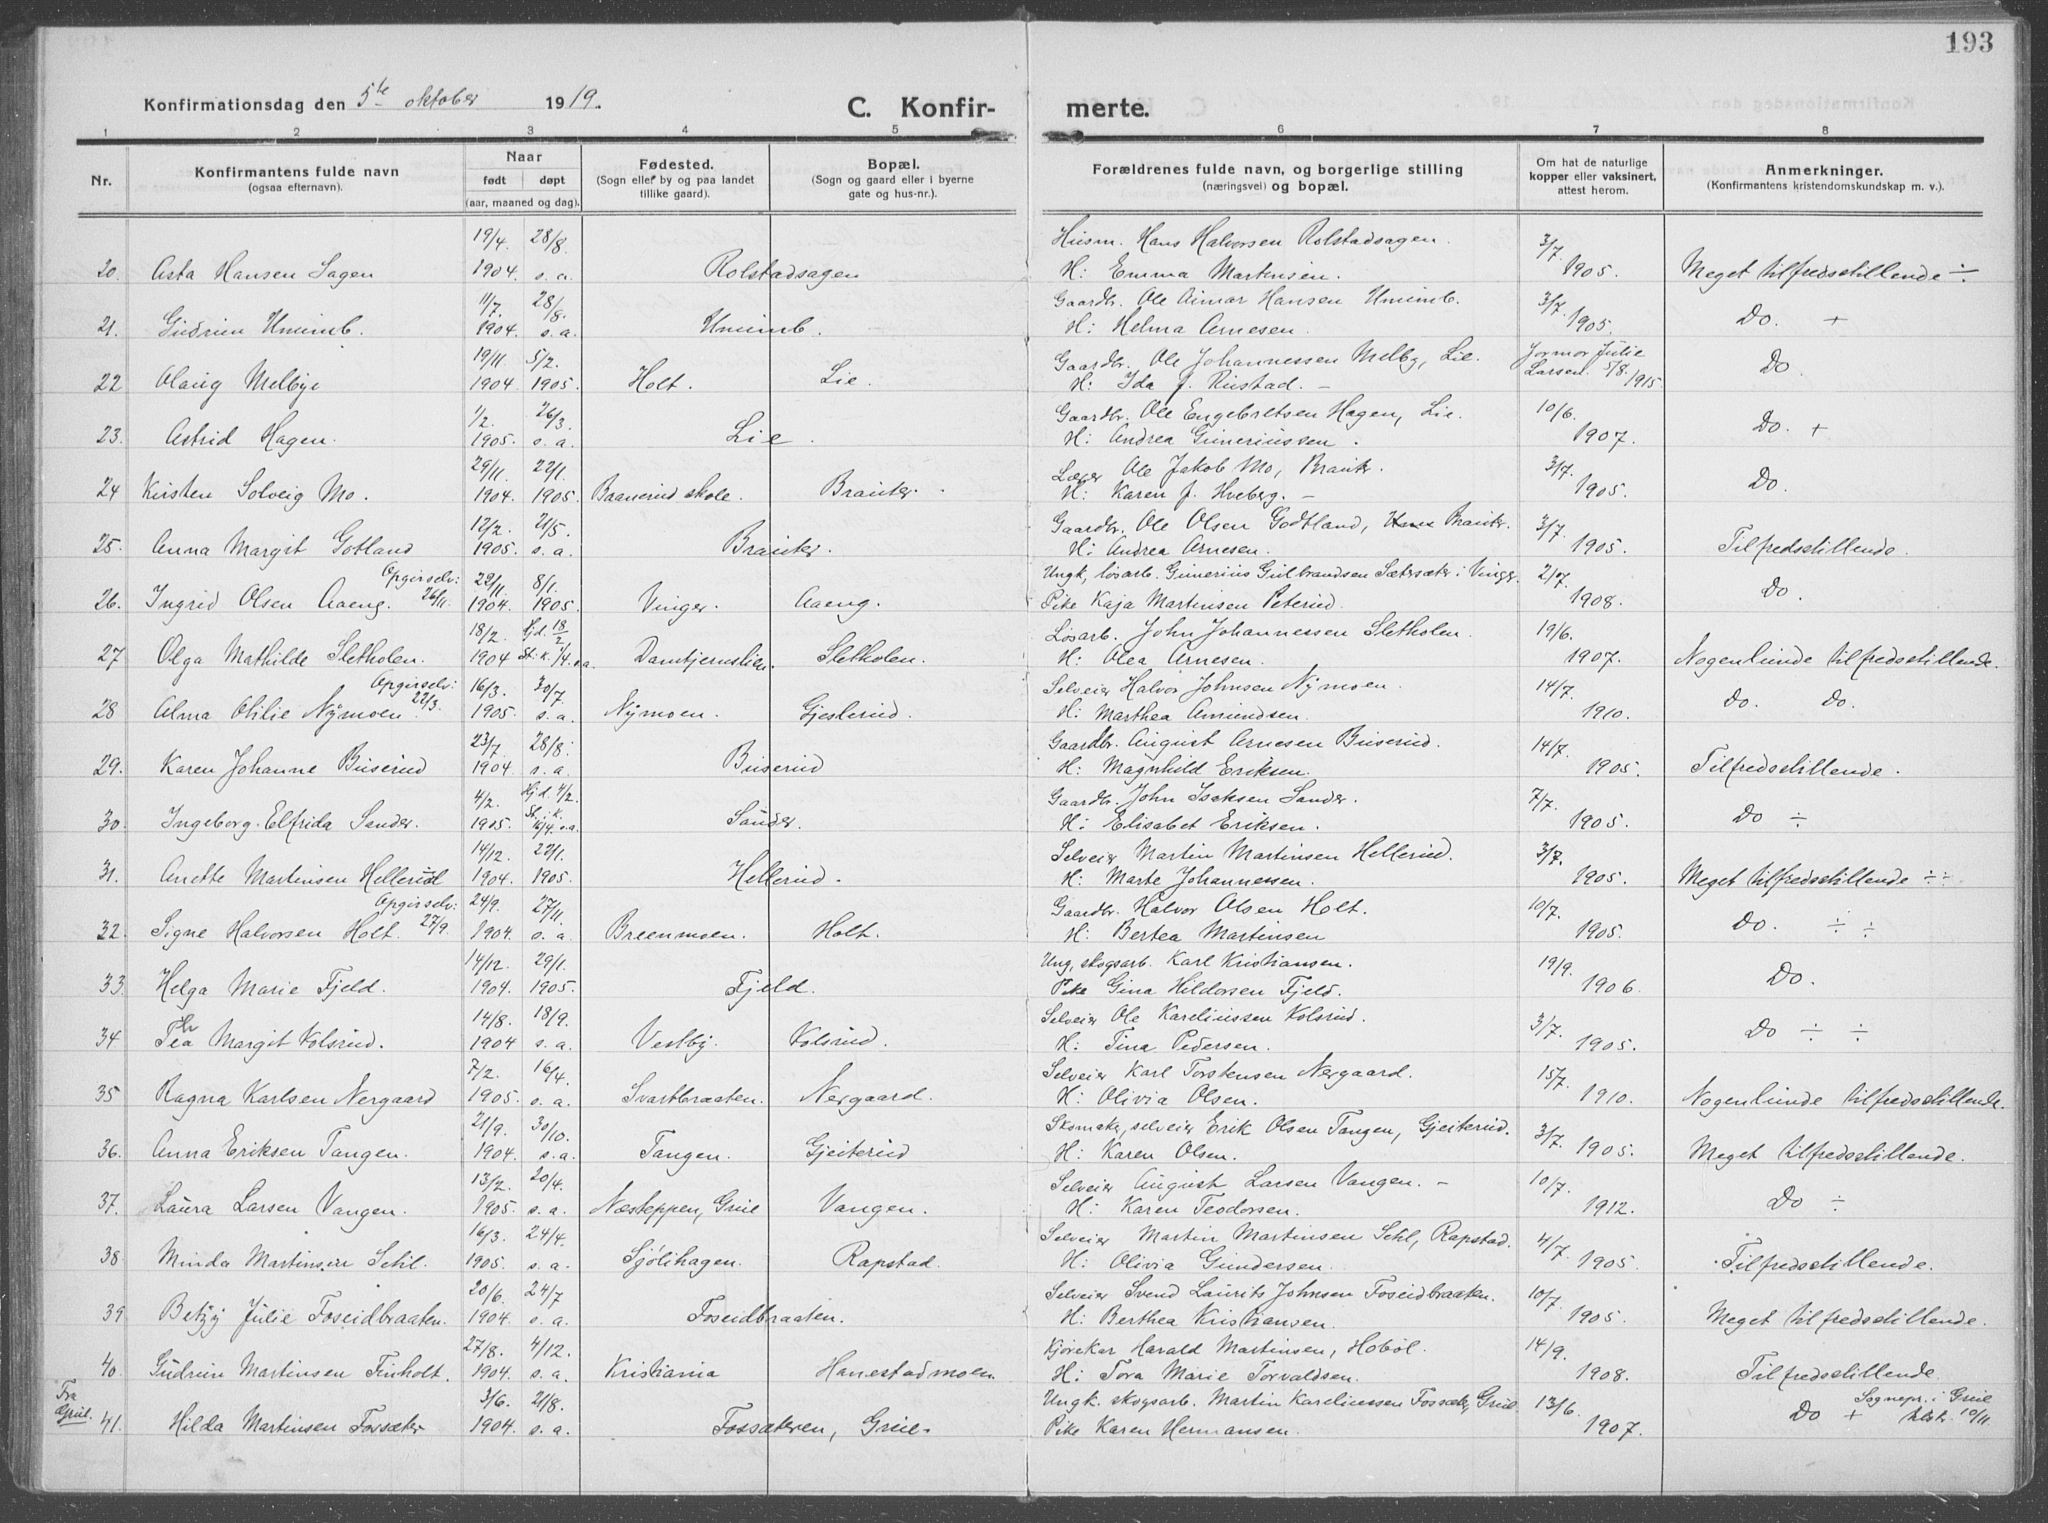 193
Konfirmationsdag den 5te oktober 1919.
C. Konfirmerte.
1 2 3 4 5 6 7 8
Nr.
Konfirmantens fulde navn (ogsaa efternavn).
Naar født døpt (aar, maaned og dag).
Fødested. (Sogn eller by og paa landet tillike gaard).
Bopæl. (Sogn og gaard eller i byerne gate og hus-nr.).
Forældrenes fulde navn, og borgerlige stilling (næringsvei) og bopæl.
Om hat de naturlige kopper eller vaksinert, attest herom.
Anmerkninger. (Konfirmantens kristendomskundskap m. v.).
20. Asta Hansen Sagen 19/4 1904. 28/8. s. a. Rolstadsagen Husm. Hans Halvorsen Rolstadsagen. H: Emma Martinsen. 3/7 1905. Meget tilfredsstillende ÷
21. Gudrun Unumb. 11/7. 1904 28/8. s. a. Unumb. Gaardbr. Ole Aimar Hansen Unumb. H: Helma Arnesen. 3/7. 1905. Do. +
22 Olaug Melbye 19/11. 1904 5/2. 1905. Holt. Lie. Gaardbr. Ole Johannessen Melby, Lie. H: Ida f. Rustad. – Jormor Julie Larsen. 5/8. 1915 Do.
23. Astrid Hagen. 1/2. 1905. 26/3. s. a. Lie. Gaardbr. Ole Engebretsen Hagen, Lie. H: Andrea Guneriussen. 10/6. 1907. Do. +
24 Kirsten Solveig Mo. 29/11. 1904. 22/1. 1905. Baanerud skole. Brauter. Lærer Ole Jakob Mo, Brauter. H: Karen f. Hveberg. – 3/7. 1905. Do.
25. Anna Margit Gotland 12/2. 1905. 21/5. s. a. Brauter. Gaardbr. Ole Olsen Godtland, Brauter. H: Andrea Arnesen. 3/7. 1905. Tilfredsstillende.
26. Ingrid Olsen Aaeng. Opgir selv: 26/11. 22/11. 1904. 8/1. 1905. Vinger. Aaeng. Ungk, løsarb. Gunerius Gulbrandsen Sætersæter i Vinger. Pike Kaja Martinsen Peterud. 2/7. 1908. Do.
27 Olga Mathilde Sletholen. 18/2. 1904 Hj.d. 18/2 St. i k. 7/4. s.a. Damtjernslien. Sletholen. Løsarb. John Johannessen Sletholen. H: Olea Arnesen. 19/6. 1907. Nogenlunde tilfredsstillende.
28 Alma Otilie Nymoen. Opgir selv: 22/3. 16/3. 1905. 30/7. s. a. Nymoen. Gjeslerud. Selveier Halvor Johnsen Nymoen. H: Marthea Amundsen. 14/7. 1910. Do. Do.
29. Karen Johanne Buserud 23/7. 1904. 28/8. s. a. Buserud Gaardbr. August Arnesen Buserud. H: Magnhild Eriksen. 14/7. 1905. Tilfredsstillende.
30. Ingeborg Elfrida Sander. 4/2. 1905. Hj. d. 4/2. St. i. k. 16/4. s.a. Sander. Gaardbr. John Isaksen Sander. H: Elisabet Eriksen. 7/7. 1905. Do ÷
31. Anette Martinsen Hellerud 14/12. 1904. 22/1. 1905. Hellerud. Selveier Martin Martinsen Hellerud. H: Marte Johannessen. 3/7. 1905. Meget tilfredsstillende ÷÷
32. Signe Halvorsen Holt. Opgir selv: 27/9. 24/9. 1904. 27/11. s. a. Breenmoen. Holt. Gaardbr. Halvor Olsen Holt. H: Bertea Martinsen 10/7. 1905. Do. ÷ ÷
33. Helga Marie Fjeld. 14/12. 1904. 29/1. 1905. Fjeld. Ung, skogsarb. Karl Kristiansen. Pike Gina Hildorsen Fjeld. 19/9. 1906. Do.
34 Thea Margit Kolsrud. 14/8. 1904 18/9. s. a. Vestby. Kolsrud. Selveier Ole Kareliussen Kolsrud. H: Tina Pedersen. 3/7. 1905. Do ÷ ÷
35 Ragna Karlsen Nergaard 7/2. 1905. 16/4. s. a. Svartbraaten. Nergaard. Selveier Karl Torstensen Nergaard. H: Olivia Olsen. 15/7. 1910. Nogenlunde tilfredsstillende.
36. Anna Eriksen Tangen. 21/9. 1904. 30/10. s. a. Tangen. Gjeiterud Skomaker, selveier Erik Olsen Tangen, Gjeiterud. H: Karen Olsen. 3/7. 1905. Meget tilfredsstillende.
37. Laura Larsen Vangen. 13/2. 1905. 20/4. s. a. Næsteppen, Grue Vangen. Selveier August Larsen Vangen. – H: Karen Teodorsen. 10/7. 1912. Do ÷
38 Minda Martinsen Sehl. 16/3. 1905. 24/4. s. a. Sjølihagen. Rapstad. Selveier Martin Martinsen Sehl, Rapstad. H: Olivia Gundersen. 4/7. 1905. Tilfredsstillende.
39 Betzy Julie Foseidbraaten. 20/6. 1904. 24/7 s. a. Foseidbraaten. Selveier Svend Laurits Johnsen Foseidbraaten. H: Berthea Kristiansen. 10/7. 1905. Meget tilfredsstillende.
40. Gudrun Martinsen Finholt. 27/8. 1904. 4/12. s. a. Kristiania Hanestadmoen Kjørekar Harald Martinsen, Hobøl. H: Tora Marie Torvaldsen. 14/9. 1908. Tilfredsstillende.
Fra Grue. 41. Hilda Martinsen Fossæter 3/6. 1904. 21/8. s. a. Fossæteren, Grue. Ungk. skogsarb. Martin Kareliussen Fossæter, Grue. Pike Karen Hermansen. 13/6. 1907. Do + Sognepr. i Grue tilst. 10/11.